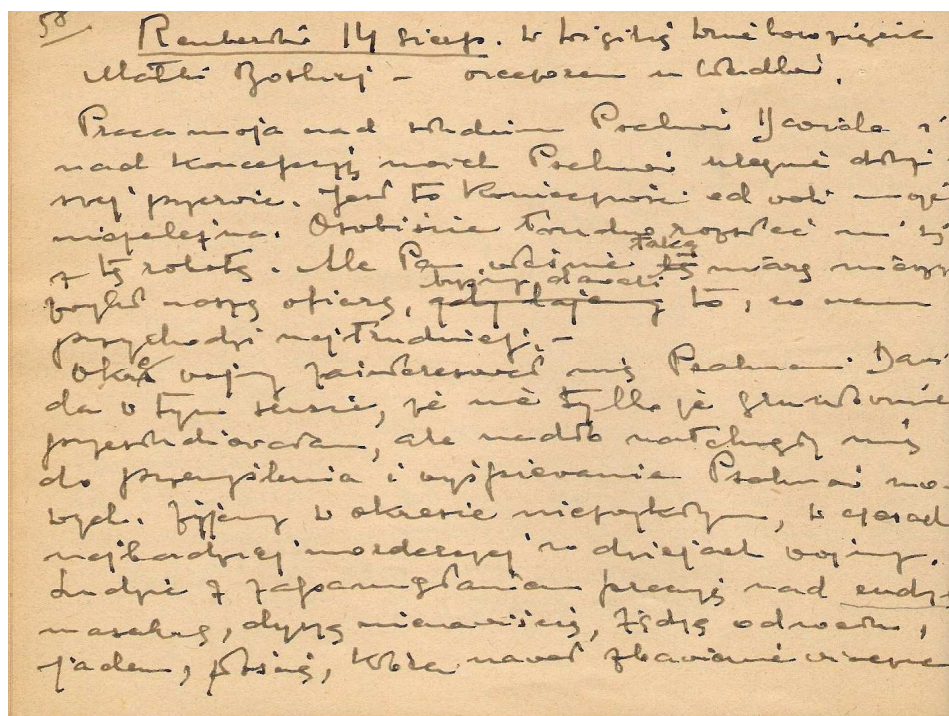 58
Rembertów 14 sierp. w wigilię Wniebowzięcia
Matki Boskiej –
Praca moja nad studium Psalmów Dawida i
nad koncepcją nowych Psalmów ulegnie dziś
swej przerwie. Jest to konieczność od woli mojej
niezależna. Osobiście trudno rozstać mi się
z tą robotą. Ale Pan właśnie taką miarą mierzy
naszą ofiarę, gdy dajemy to, co nam
przychodzi najtrudniej. –
wojny zainteresował mię Psalmami Dawi
da w tym sensie, że nie tylko je gruntownie
przestudiowałam, ale nadto natchnął mię
do przemyślenia i wyśpiewania Psalmów no-
wych. Żyjemy w okresie niezwykłym, w czasach
najbardziej morderczej w dziejach wojny.
Ludzie z zapamiętaniem pracują nad
dyszą nienawiścią, żądzą odwetu,
jadem, która nawet zbawienie wieczne